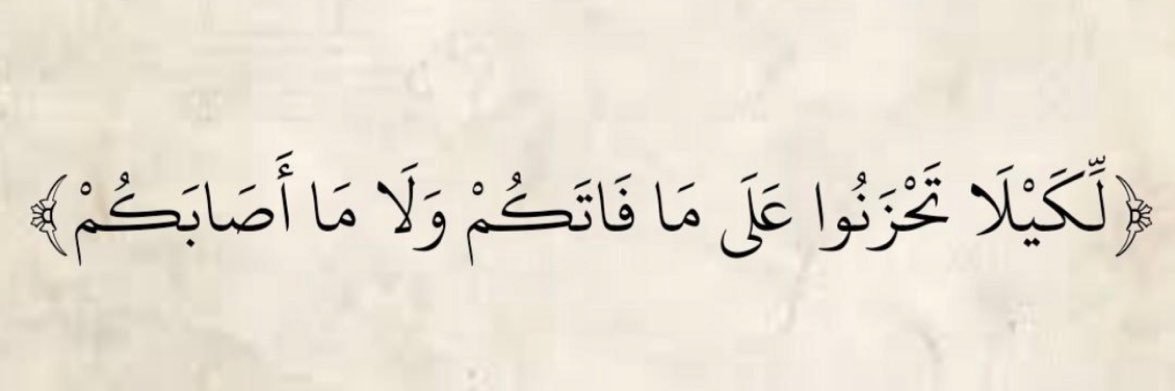 ﴿لِّكَيْلَا تَحْزَنُوا عَلَى مَا فَاتَكُمْ وَلَا مَا أَصَابَكُمْ﴾